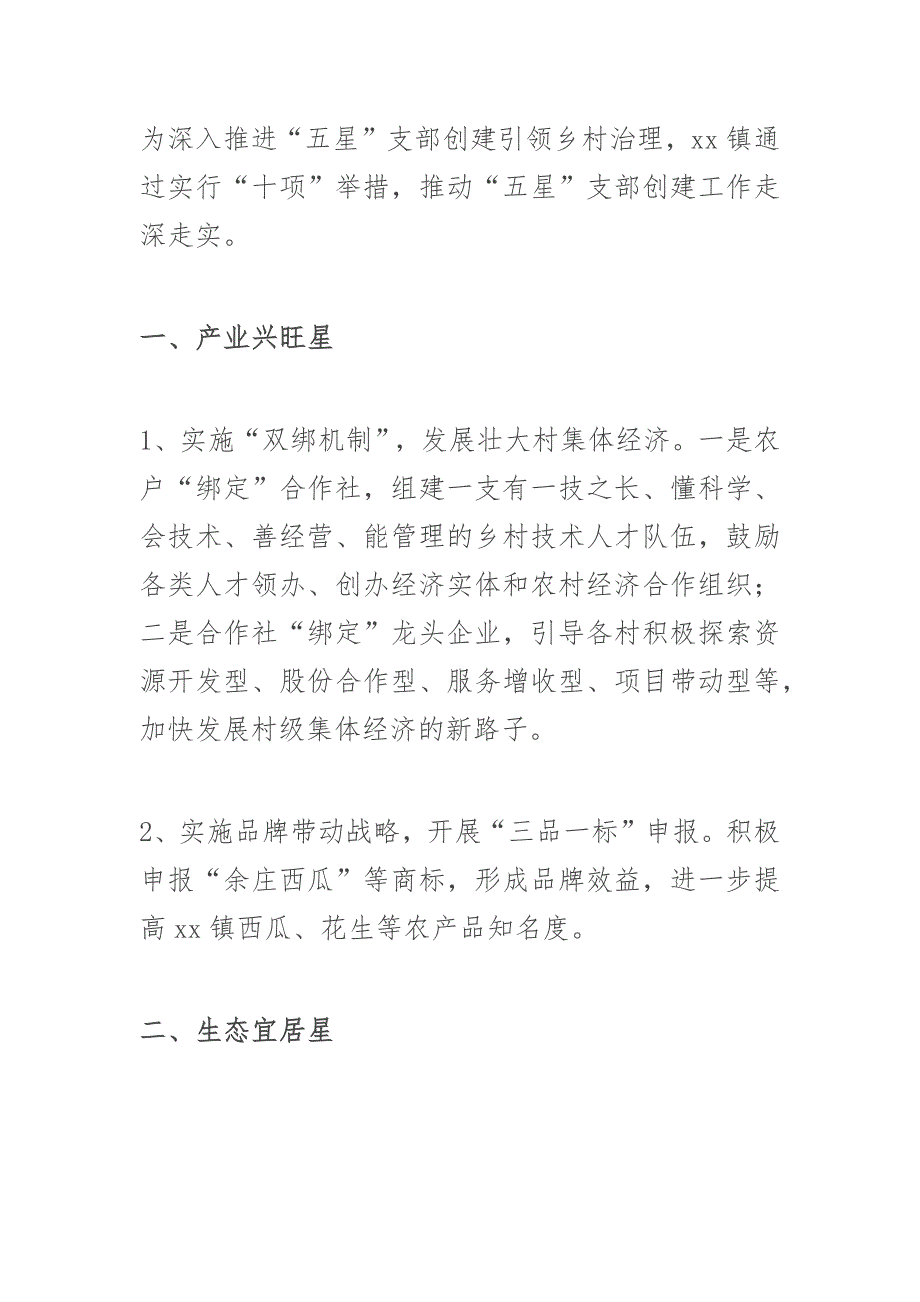 为深入推进“五星”支部创建引领乡村治理，xx 镇通
过实行“十项”举措，推动“五星”支部创建工作走
深走实。
一、产业兴旺星
1、实施“双绑机制”，发展壮大村集体经济。一是农
户“绑定”合作社，组建一支有一技之长、懂科学、
会技术、善经营、能管理的乡村技术人才队伍，鼓励
各类人才领办、创办经济实体和农村经济合作组织；
二是合作社“绑定”龙头企业，引导各村积极探索资
源开发型、股份合作型、服务增收型、项目带动型等，
加快发展村级集体经济的新路子。
2、实施品牌带动战略，开展“三品一标”申报。积极
申报“余庄西瓜”等商标，形成品牌效益，进一步提
高 xx 镇西瓜、花生等农产品知名度。
二、生态宜居星